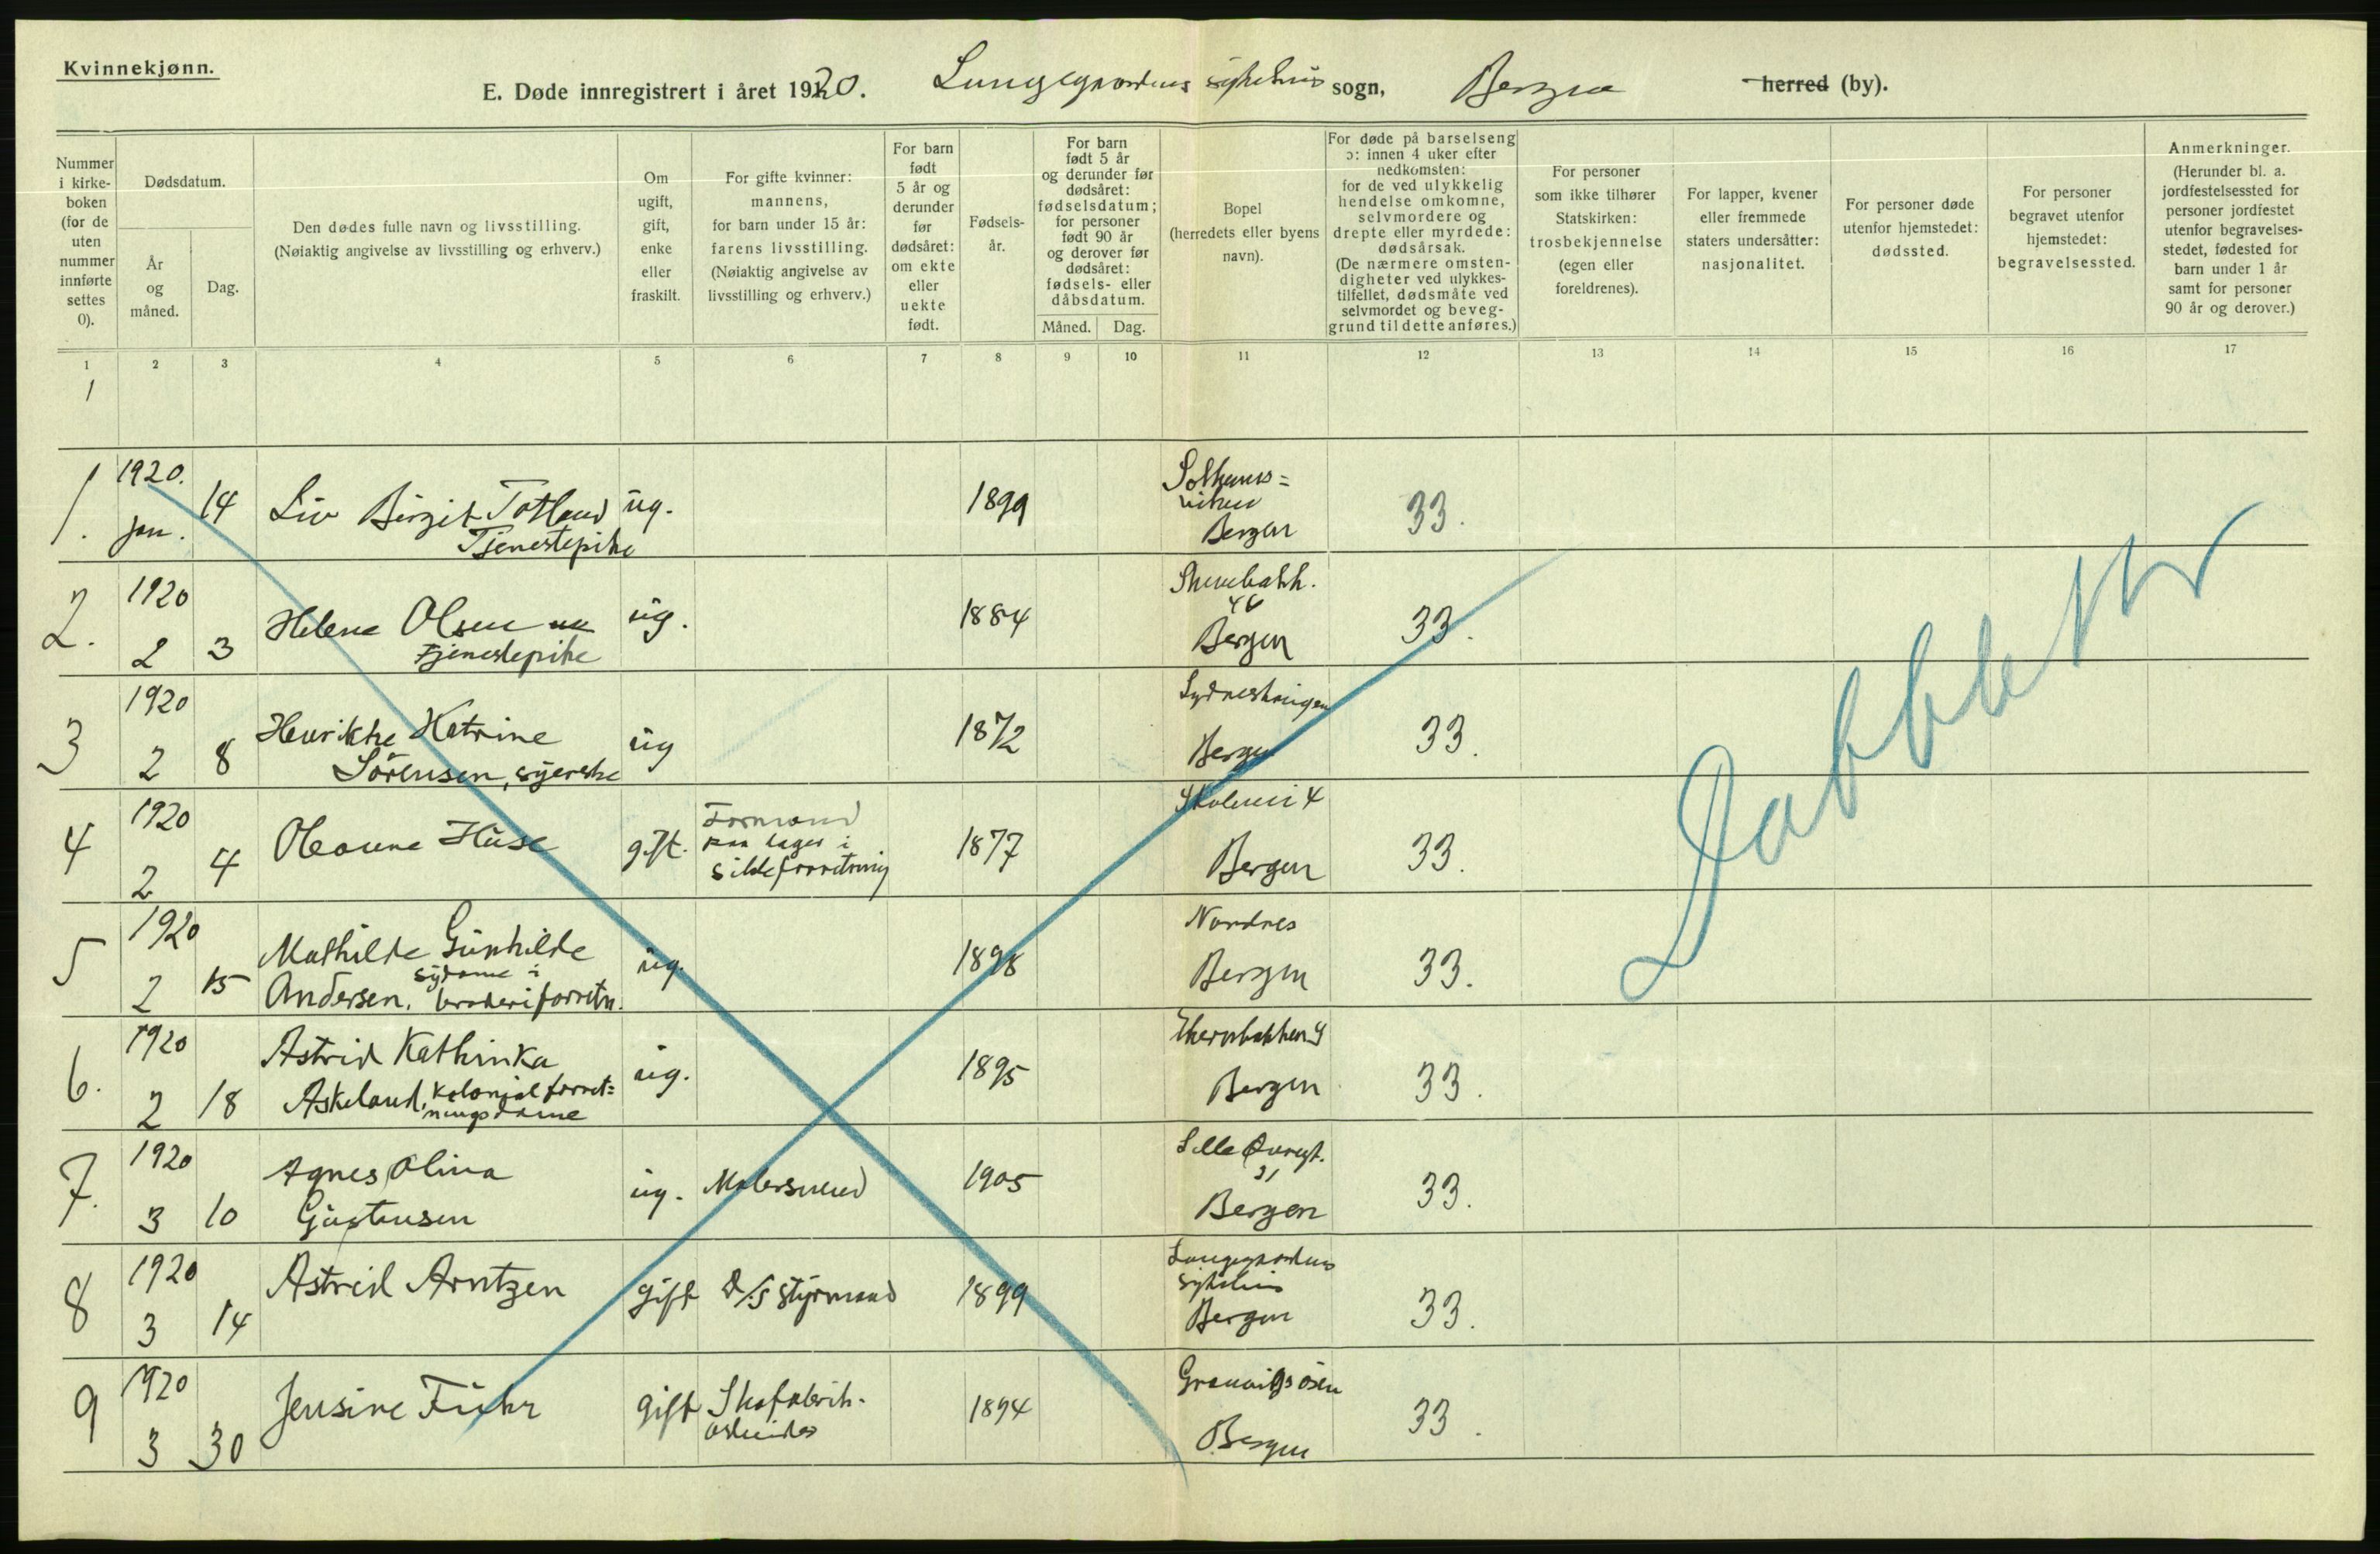 Kvinnekjønn.
E. Døde innregistrert i året 1920. Lungegaardens sykehus sogn, Bergen herred (by).
Nummer i kirke-boken (for de uten nummer innførte settes 0).
Dødsdatum.
År og måned.
Dag.
Den dødes fulle navn og livsstilling.
(Nøiaktig angivelse av livsstilling og erhverv.)
Om ugift, gift, enke eller fraskilt.
For gifte kvinner: mannens, for barn under 15 år: farens livsstilling.
(Nøiaktig angivelse av livsstilling og erhverv.)
For barn født 5 år og derunder før dødsåret: om ekte eller uekte født.
Fødsels-år.
For barn født 5 år og derunder før dødsåret: fødselsdatum; for personer født 90 år og derover før dødsåret: fødsels- eller dåbsdatum.
Måned. Dag.
Bopel (herredets eller byens navn).
For døde på barselseng ɔ: innen 4 uker efter nedkomsten: for de ved ulykkelig hendelse omkomne, selvmordere og drepte eller myrdede: dødsårsak.
(De nærmere omsten-digheter ved ulykkes-tilfellet, dødsmåte ved selvmordet og beveg-grund til dette anføres.)
For personer som ikke tilhører Statskirken: trosbekjennelse (egen eller foreldrenes).
For lapper, kvener eller fremmede staters undersåtter: nasjonalitet.
For personer døde utenfor hjemstedet: dødssted.
For personer begravet utenfor hjemstedet: begravelsessted.
Anmerkninger.
(Herunder bl. a. jordfestelsessted for personer jordfestet utenfor begravelses-stedet, fødested for barn under 1 år samt for personer 90 år og derover.)
1 2 3 4 5 6 7 8 9 10 11 12 13 14 15 16 17
1
1. 1920. jan. 14 Liv Birgit Totland Tjenestepike ug. 1899 Solheims=viken Bergen 33.
2. 1920 2 3 Helene Olsen tjenestepike ug. 1884 Bergen 33.
3 1920 2 8 Henrikke Katrine Sörensen, syerske ug 1872 Sydneshaugen Bergen 33.
4 1920 2 4 Oleanna Huse gift. Formand paa lager i sildeforretning 1877 Bergen 33.
5 1920 2 15 Mathilde Gunhilde Andersen. sydame i broderiforretn. ug. 1898 Nordnes Bergen 33.
6. 1920 2 18 Astrid Kathinka Askeland, kolonialforret=ningsdame ug. 1895 Bergen 33.
7. 1920 3 10 Agnes Olina Gustensen ug. Malersvend 1905 Lille Øvregt. 21 Bergen 33.
8 1920 3 14 Astrid Arntzen gift D/S styrmand 1899 Lungegaardens sykehus Bergen 33.
9 1920 3 30 Jensine Führ gift Skofabrik-arbeider 1894 Bergen 33.
Dobbelt